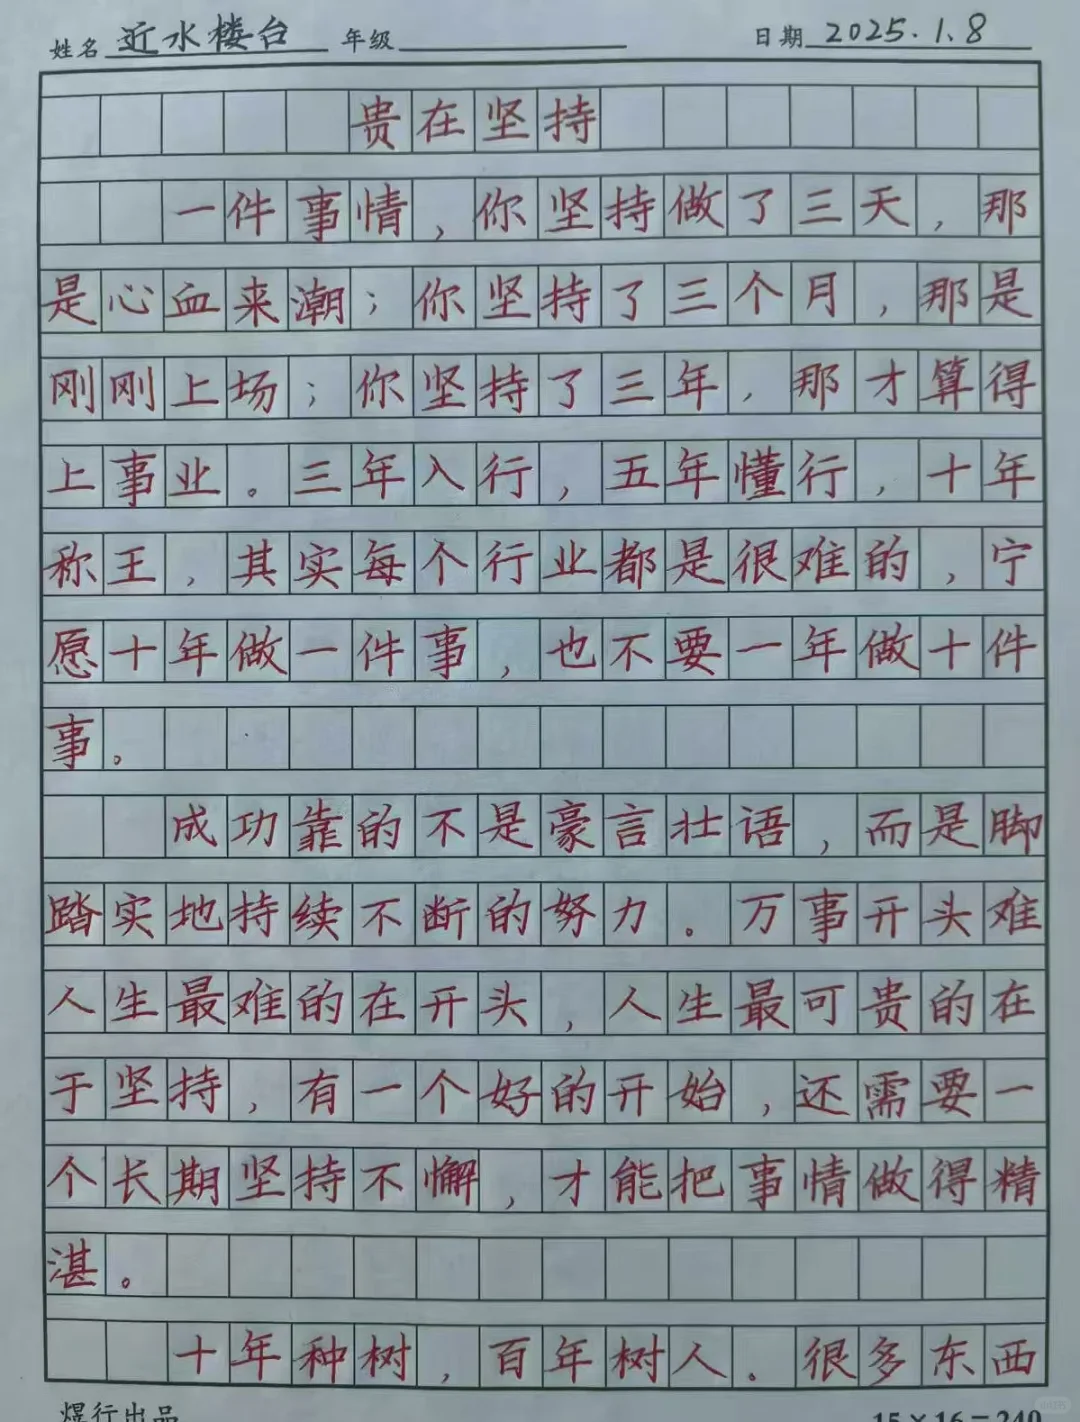 姓名 近水楼台 年级 日期 2025.1.8
贵在坚持
一件事情，你坚持做了三天，那
是心血来潮；你坚持了三个月，那是
刚刚上场；你坚持了三年，那才算得
上事业。三年入行，五年懂行，十年
称王，其实每个行业都是很难的，宁
愿十年做一件事，也不要一年做十件
事。
成功靠的不是豪言壮语，而是脚
踏实地持续不断的努力。万事开头难
人生最难的在开头，人生最可贵的在
于坚持，有一个好的开始，还需要一
个长期坚持不懈，才能把事情做得精
湛。
十年种树，百年树人。很多东西
煜行出品 15×16=240